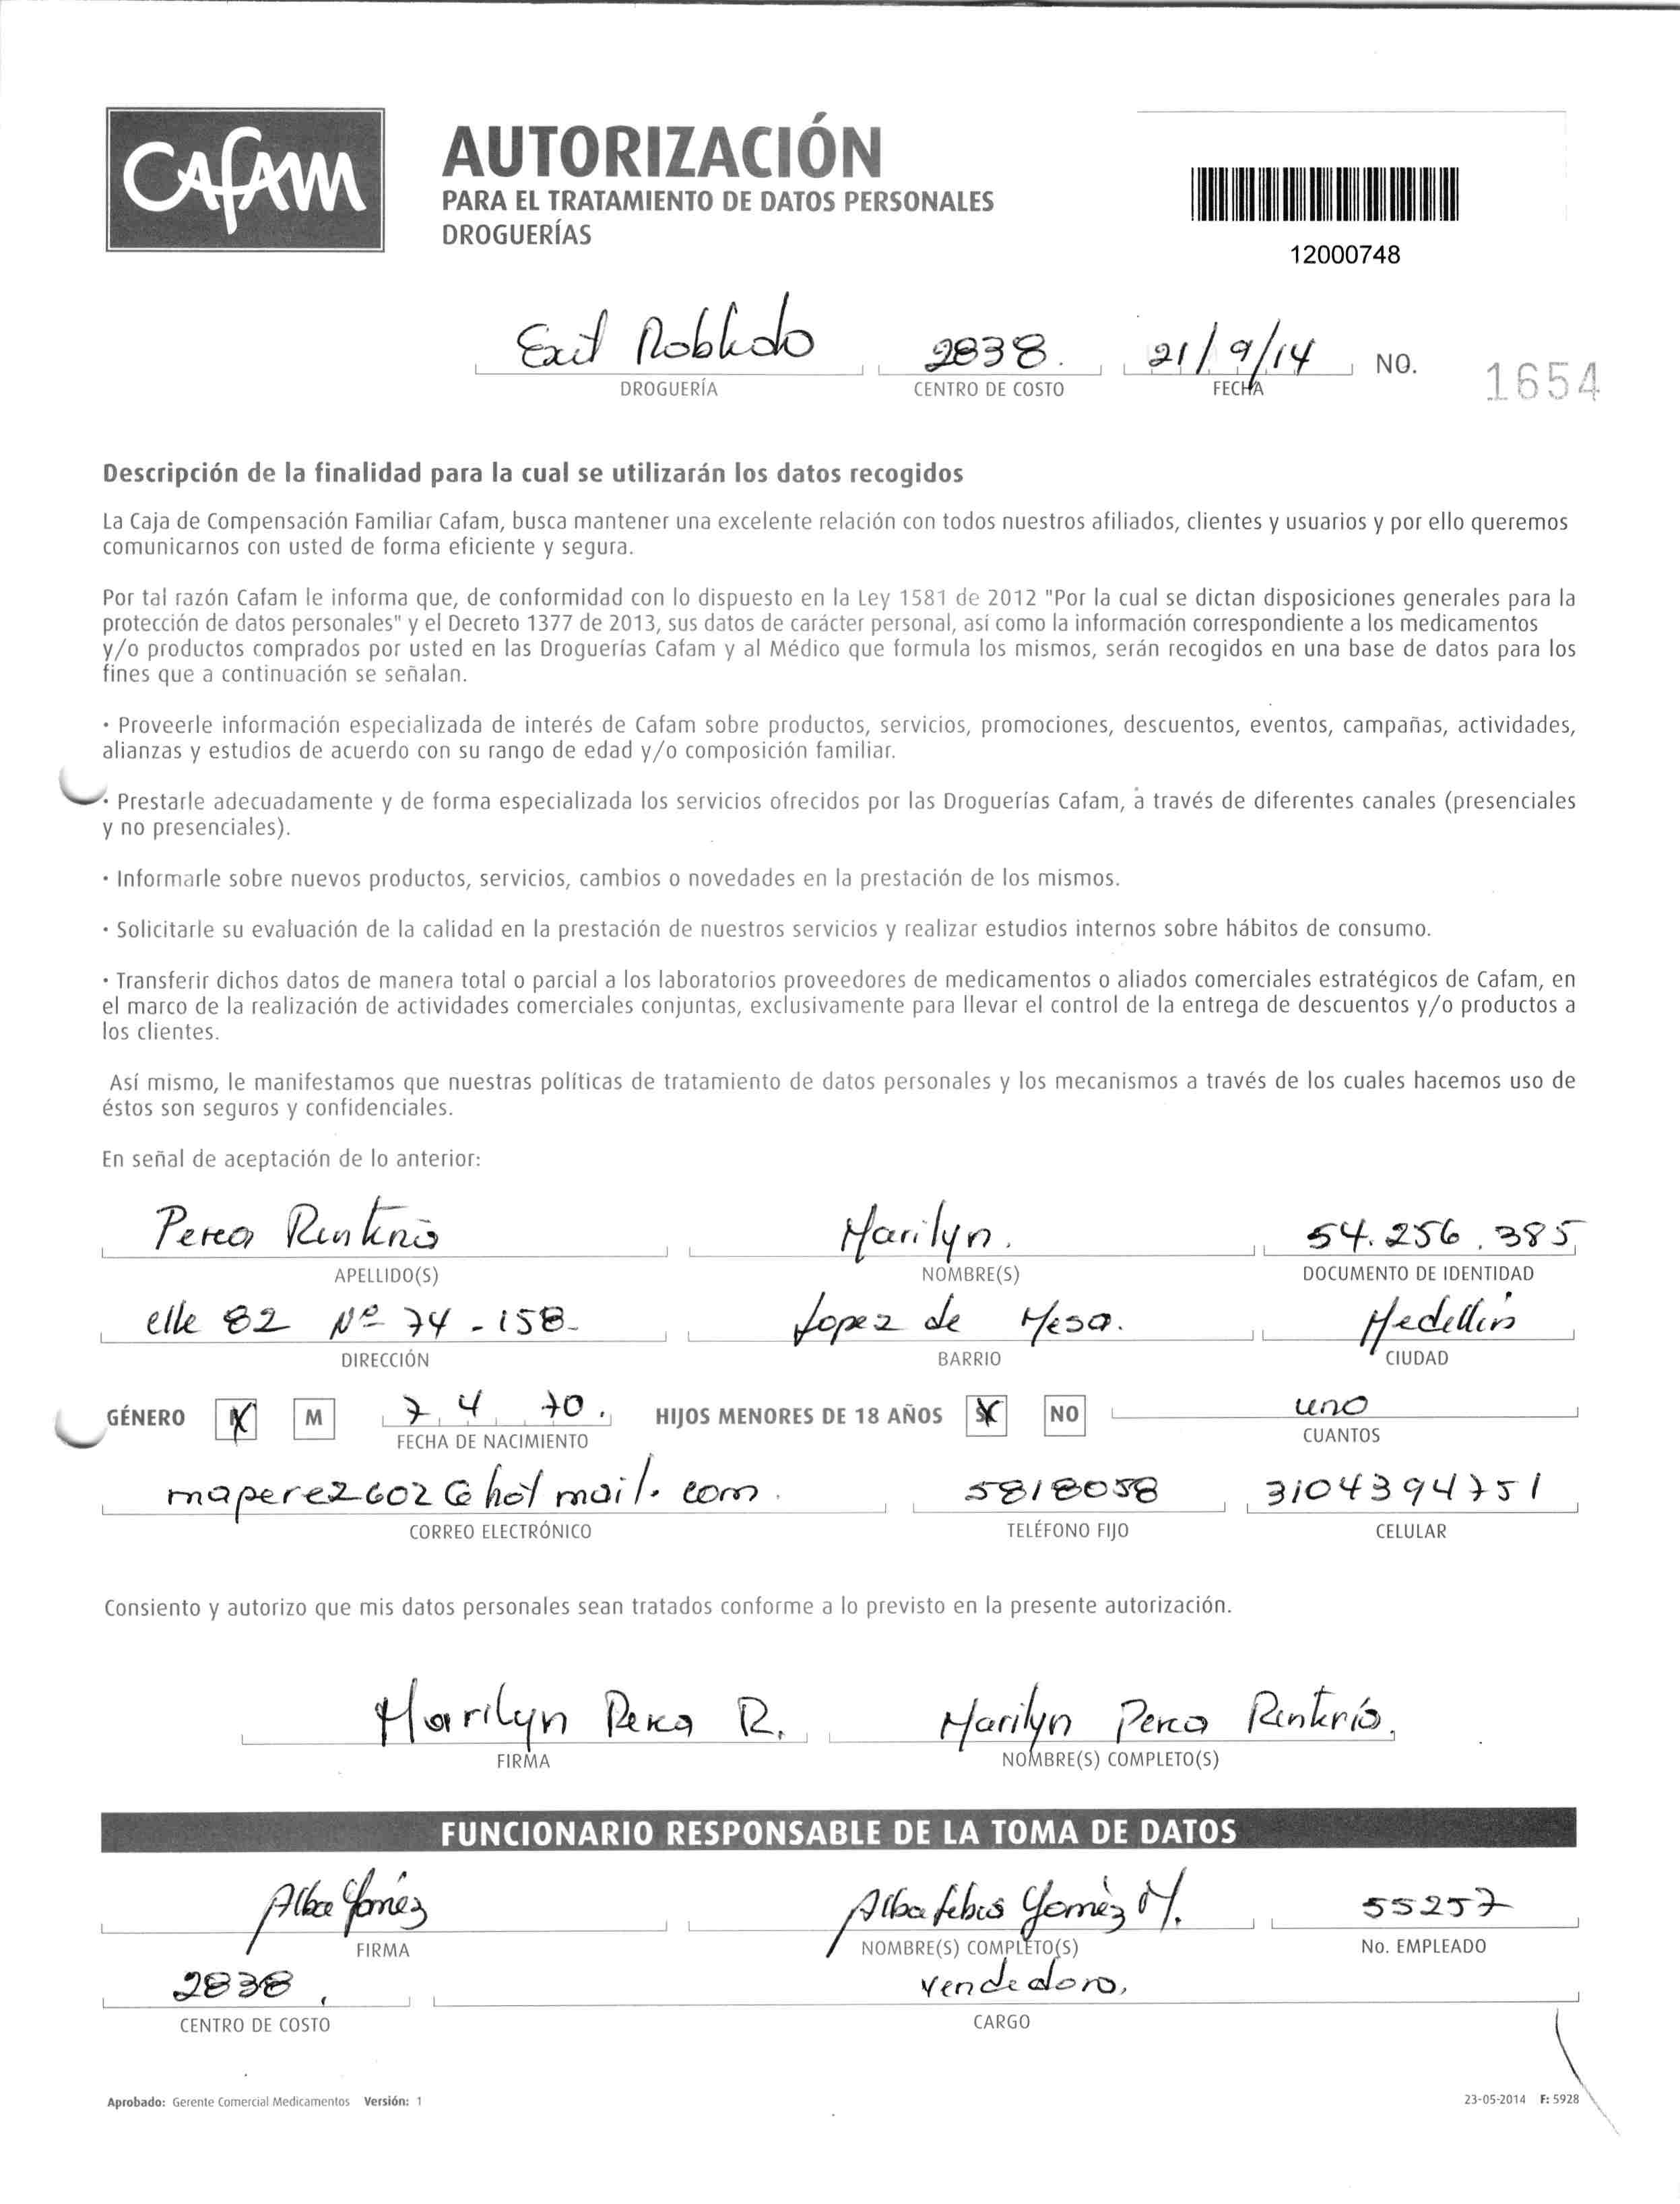 Cafam
AUTORIZACIÓN
PARA EL TRATAMIENTO DE DATOS PERSONALES
DROGUERÍAS
12000748
Exit Robledo 2838. 21/9/14 NO. 1654
DROGUERÍA CENTRO DE COSTO FECHA
Descripción de la finalidad para la cual se utilizarán los datos recogidos
La Caja de Compensación Familiar Cafam, busca mantener una excelente relación con todos nuestros afiliados, clientes y usuarios y por ello queremos
comunicarnos con usted de forma eficiente y segura.
Por tal razón Cafam le informa que, de conformidad con lo dispuesto en la Ley 1581 de 2012 "Por la cual se dictan disposiciones generales para la
protección de datos personales" y el Decreto 1377 de 2013, sus datos de carácter personal, así como la información correspondiente a los medicamentos
y/o productos comprados por usted en las Droguerías Cafam y al Médico que formula los mismos, serán recogidos en una base de datos para los
fines que a continuación se señalan.
· Proveerle información especializada de interés de Cafam sobre productos, servicios, promociones, descuentos, eventos, campañas, actividades,
alianzas y estudios de acuerdo con su rango de edad y/o composición familiar.
· Prestarle adecuadamente y de forma especializada los servicios ofrecidos por las Droguerías Cafam, a través de diferentes canales (presenciales
y no presenciales).
· Informarle sobre nuevos productos, servicios, cambios o novedades en la prestación de los mismos.
· Solicitarle su evaluación de la calidad en la prestación de nuestros servicios y realizar estudios internos sobre hábitos de consumo.
· Transferir dichos datos de manera total o parcial a los laboratorios proveedores de medicamentos o aliados comerciales estratégicos de Cafam, en
el marco de la realización de actividades comerciales conjuntas, exclusivamente para llevar el control de la entrega de descuentos y/o productos a
los clientes.
Así mismo, le manifestamos que nuestras políticas de tratamiento de datos personales y los mecanismos a través de los cuales hacemos uso de
éstos son seguros y confidenciales.
En señal de aceptación de lo anterior:
Perea Rentería Marilyn. 54.256.385
APELLIDO(S) NOMBRE(S) DOCUMENTO DE IDENTIDAD
clle 82 Nº 74-158- Lopez de Mesa. Medellin
DIRECCIÓN BARRIO CIUDAD
GÉNERO X M 7 4 70. HIJOS MENORES DE 18 AÑOS SI X NO uno
FECHA DE NACIMIENTO CUANTOS
maperez602@hotmail.com. 5818058 3104394751
CORREO ELECTRÓNICO TELÉFONO FIJO CELULAR
Consiento y autorizo que mis datos personales sean tratados conforme a lo previsto en la presente autorización.
Marilyn Perea R. Marilyn Perea Rentería.
FIRMA NOMBRE(S) COMPLETO(S)
FUNCIONARIO RESPONSABLE DE LA TOMA DE DATOS
Alba Gomez Alba Gomèz M. 55257
FIRMA NOMBRE(S) COMPLETO(S) No. EMPLEADO
2838 vendedora.
CENTRO DE COSTO CARGO
Aprobado: Gerente Comercial Medicamentos Versión: 1 23-05-2014 F: 5928